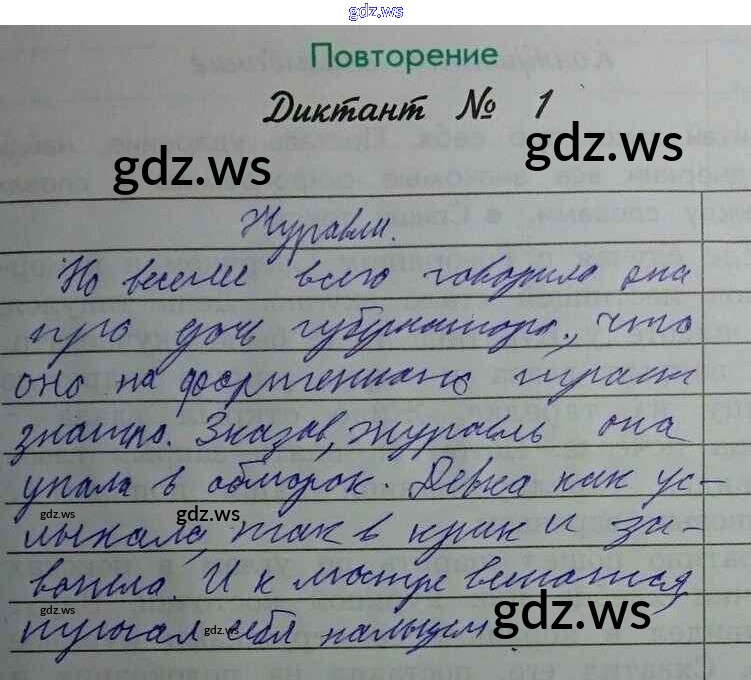 gdz.ws
Повторение
Диктант № 1
gdz.ws gdz.ws
Журавли.
Но веселее всего говорила она
про дочь губернатора, что
она на фортепиано играет
знатно. Сказав, журавль она
упала в обморок. Девка как ус-
gdz.ws gdz.ws
лыхала, так в крик и за-
вопила. И к
gdz.ws gdz.ws gdz.ws
пугал себя пальцем